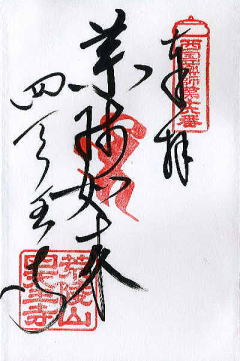 西国薬師第十六番
奉拝
薬師如来
四天王寺
荒陵山
四天王寺